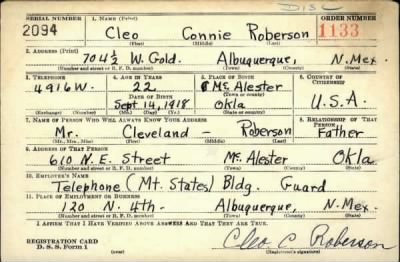 DISC
SERIAL NUMBER 1. NAME (Print) ORDER NUMBER
2094 Cleo Connie Roberson 1133
(First) (Middle) (Last)
2. ADDRESS (Print)
704½ W. Gold. Albuquerque, N. Mex.
(Number and street or R. F. D. number) (Town) (County) (State)
3. TELEPHONE 4. AGE IN YEARS 5. PLACE OF BIRTH 6. COUNTRY OF CITIZENSHIP
4916W. 22 Mc Alester
DATE OF BIRTH (Town or county)
Sept. 14, 1918 Okla U.S.A.
(Exchange) (No.) (Mo.) (Day) (Yr.) (State or country)
7. NAME OF PERSON WHO WILL ALWAYS KNOW YOUR ADDRESS 8. RELATIONSHIP OF THAT PERSON
Mr. Cleveland — Roberson Father
(Mr., Mrs., Miss) (First) (Middle) (Last)
9. ADDRESS OF THAT PERSON
610 N.E. Street Mc. Alester Okla
(Number and street or R. F. D. number) (Town) (County) (State)
10. EMPLOYER'S NAME
Telephone (Mt. States) Bldg. Guard
11. PLACE OF EMPLOYMENT OR BUSINESS
120 N. 4th. Albuquerque, N. Mex.
(Number and street or R. F. D. number) (Town) (County) (State)
I AFFIRM THAT I HAVE VERIFIED ABOVE ANSWERS AND THAT THEY ARE TRUE.
REGISTRATION CARD
D. S. S. Form 1 Cleo C. Roberson
(Registrant's signature)